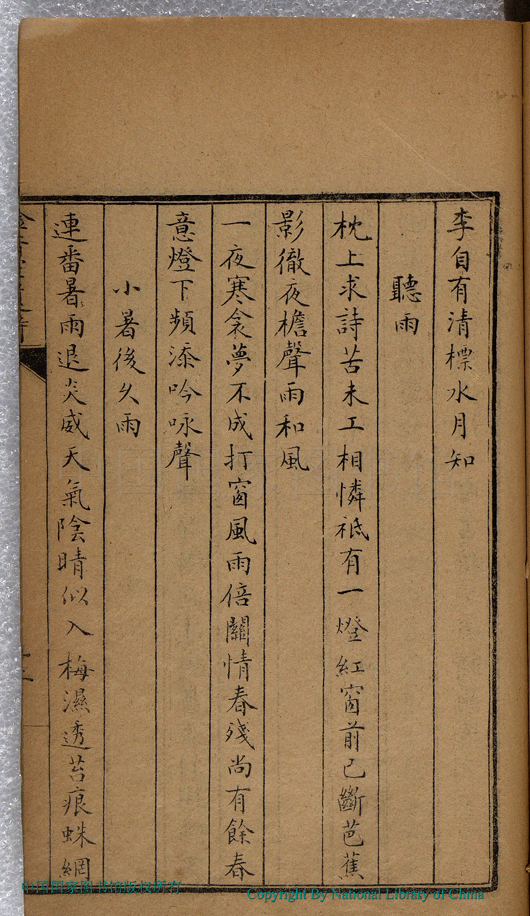 李自有清標水月知
聽雨
枕上求詩苦未工相憐祗有一燈紅窗前已斷芭蕉
影徹夜檐聲雨和風
一夜寒衾夢不成打窗風雨倍關情春殘尚有餘春
意燈下頻添吟咏聲
小暑後久雨
連番暑雨退炎威天氣陰晴似入梅濕透苔痕蛛網
中国国家图书馆版权所有
Copyright By National Library of China